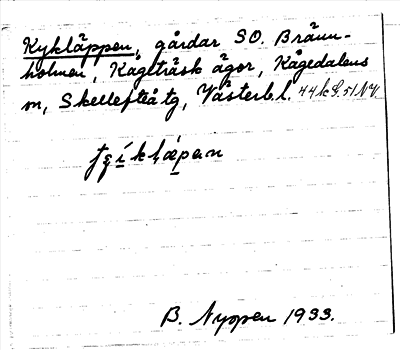 Kykläppen, gårdar SO. Bränn-
holmen, Kågeträsk ägor, Kågedalens
m, Skellefteå tg, Västerb. l. 44 k S. 51 NV.
B. Nyppen 1933.